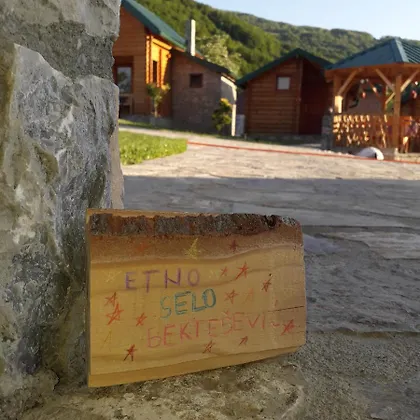 ETNO
SELO
BEKTEŠEVIĆ